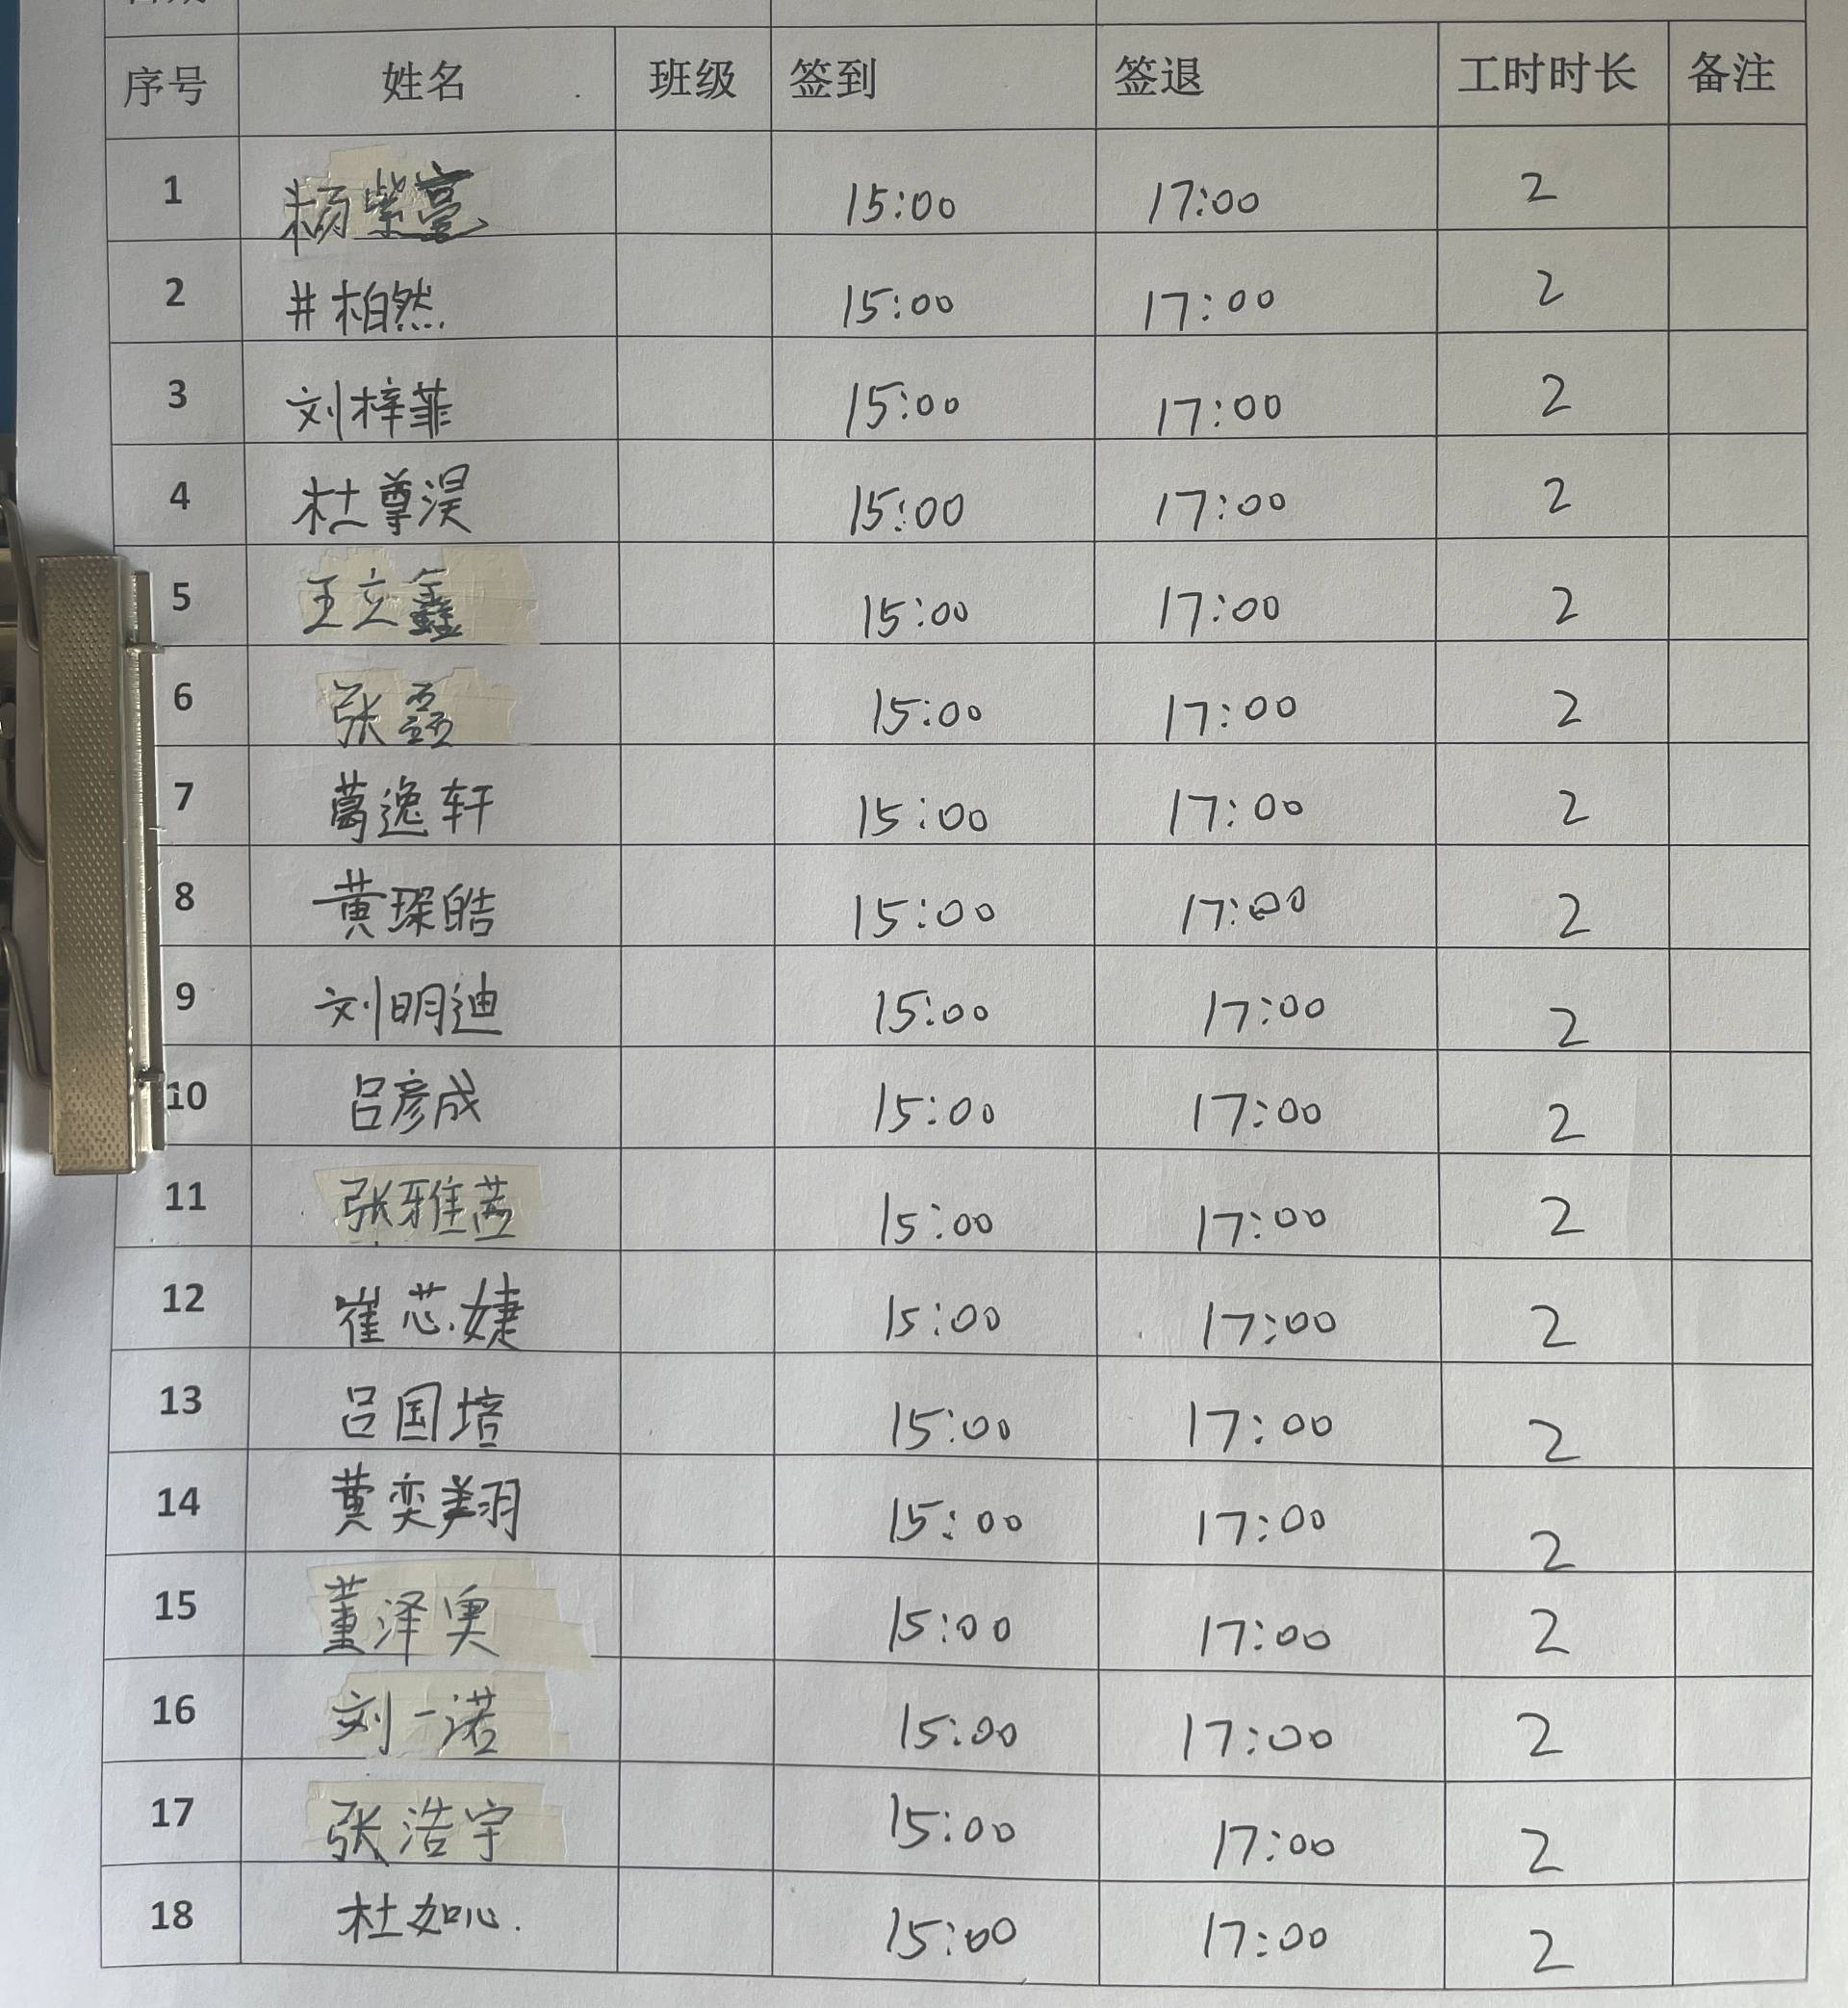 序号 姓名 班级 签到 签退 工时时长 备注
1 杨紫 15:00 17:00 2
2 井柏然 15:00 17:00 2
3 刘梓菲 15:00 17:00 2
4 杜尊淏 15:00 17:00 2
5 王立鑫 15:00 17:00 2
6 张 15:00 17:00 2
7 葛逸轩 15:00 17:00 2
8 黄琛皓 15:00 17:00 2
9 刘明迪 15:00 17:00 2
10 吕彦成 15:00 17:00 2
11 张雅茜 15:00 17:00 2
12 崔芯婕 15:00 17:00 2
13 吕国培 15:00 17:00 2
14 黄奕翔 15:00 17:00 2
15 董泽奥 15:00 17:00 2
16 刘一诺 15:00 17:00 2
17 张浩宇 15:00 17:00 2
18 杜如心. 15:00 17:00 2